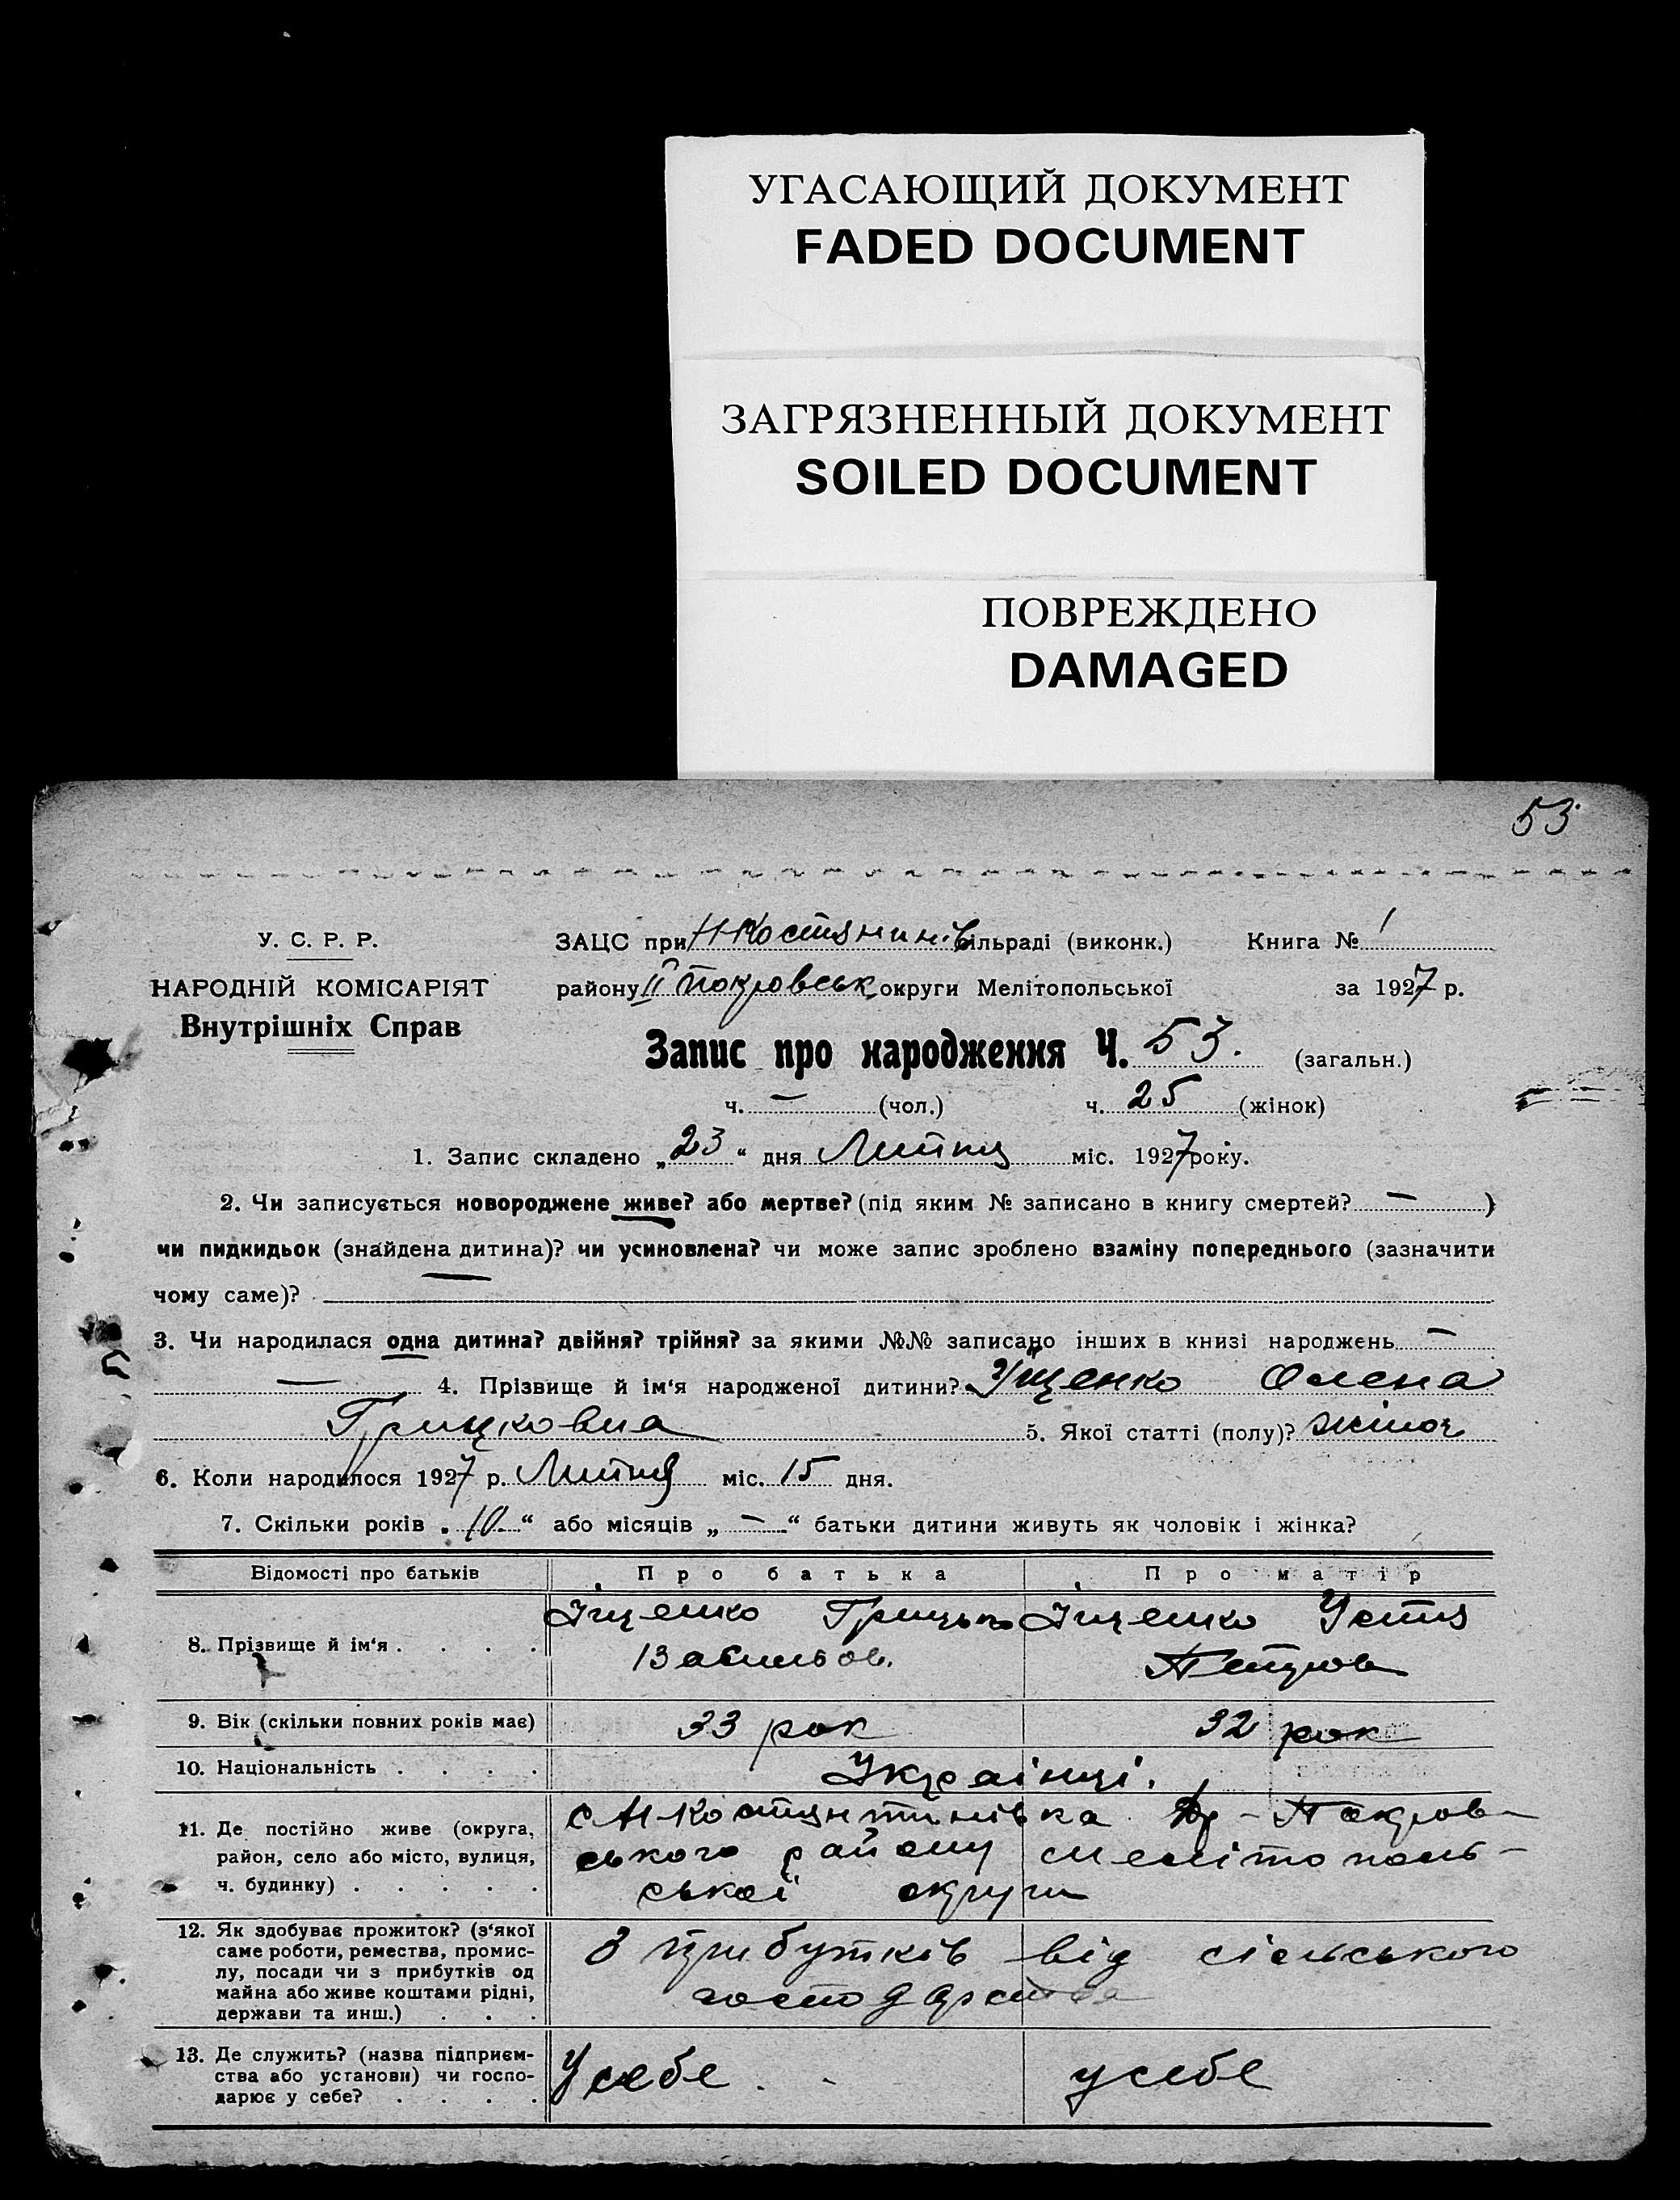 УГАСАЮЩИЙ ДОКУМЕНТ
FADED DOCUMENT
ЗАГРЯЗНЕННЫЙ ДОКУМЕНТ
SOILED DOCUMENT
ПОВРЕЖДЕНО
DAMAGED
53
У. С. Р. Р.
НАРОДНІЙ КОМІСАРІЯТ
Внутрішніх Справ
ЗАЦС при сільраді (виконк.) Книга № 1
району II Покровськ округи Мелітопольської за 1927 р.
Запис про народження Ч. 53. (загальн.)
ч. — (чол.) ч. 25 (жінок)
1. Запис складено „23“ дня Липня міс. 1927 року.
2. Чи записується новороджене живе? або мертве? (під яким № записано в книгу смертей? — )
чи пидкидьок (знайдена дитина)? чи усиновлена? чи може запис зроблено взаміну попереднього (зазначити
чому саме)? —
3. Чи народилася одна дитина? двійня? трійня? за якими №№ записано інших в книзі народжень —
— 4. Прізвище й ім‘я народженої дитини? Іщенко Олена
Грицковна 5. Якої статті (полу)? жіноч
6. Коли народилося 1927 р. Липня міс. 15 дня.
7. Скільки років „10“ або місяців „—“ батьки дитини живуть як чоловік і жінка?
Відомості про батьків Про батька Про матір
8. Прізвище й ім‘я . . . . Іщенко Грицько Іщенко Устя
Васильов. Петров
9. Вік (скільки повних років має) 33 рок 32 рок
10. Національність . . . . Українці.
11. Де постійно живе (округа,
район, село або місто, вулиця,
ч. будинку) . . . . .
с Н-Костянтинівка Др-Покров-
ського району мелітополь-
ської округи
12. Як здобуває прожиток? (з‘якої
саме роботи, ремества, промис-
лу, посади чи з прибутків од
майна або живе коштами рідні,
держави та инш.) . . .
З прибутків від сільського
господарства
13. Де служить? (назва підприєм-
ства або установи) чи госпо-
дарює у себе? . . . .
У себе. у себе